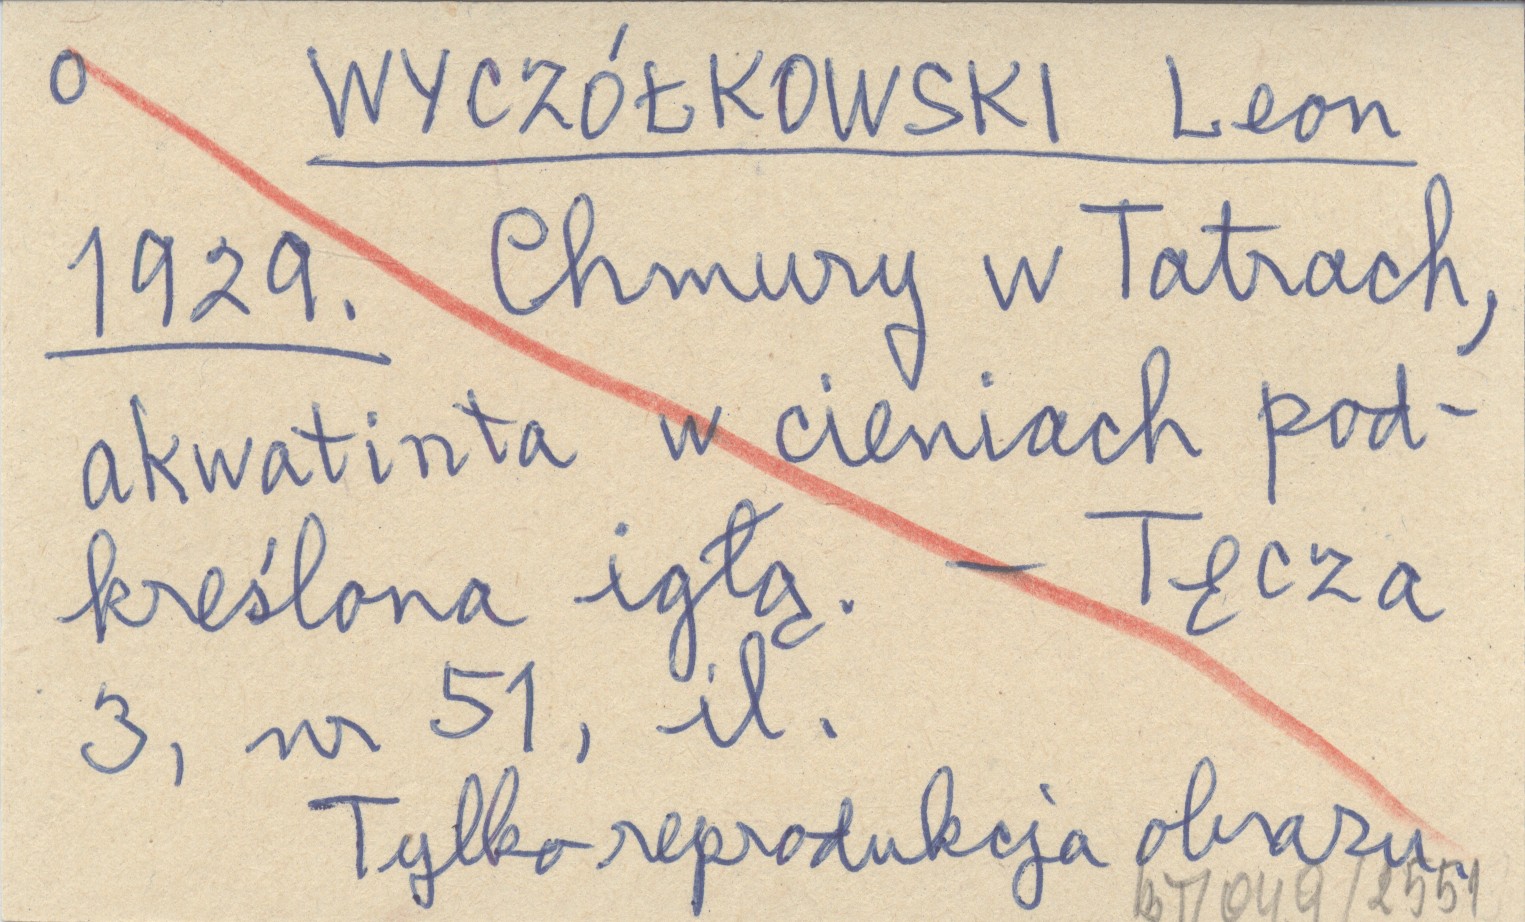 o WYCZÓŁKOWSKI Leon
1929. Chmury w Tatrach,
akwatinta w cieniach pod-
kreślona igłą. — Tęcza
3, nr 51, il.
Tylko reprodukcja obrazu.
BT/049/2551